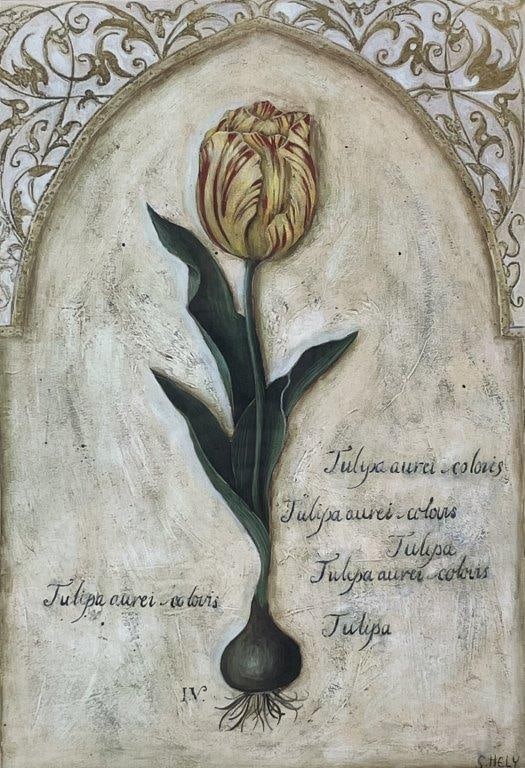 Tulipa aurei - coloris
Tulipa aurei - coloris
Tulipa
Tulipa aurei - coloris
Tulipa aurei - coloris
Tulipa
IV.
G. HELY